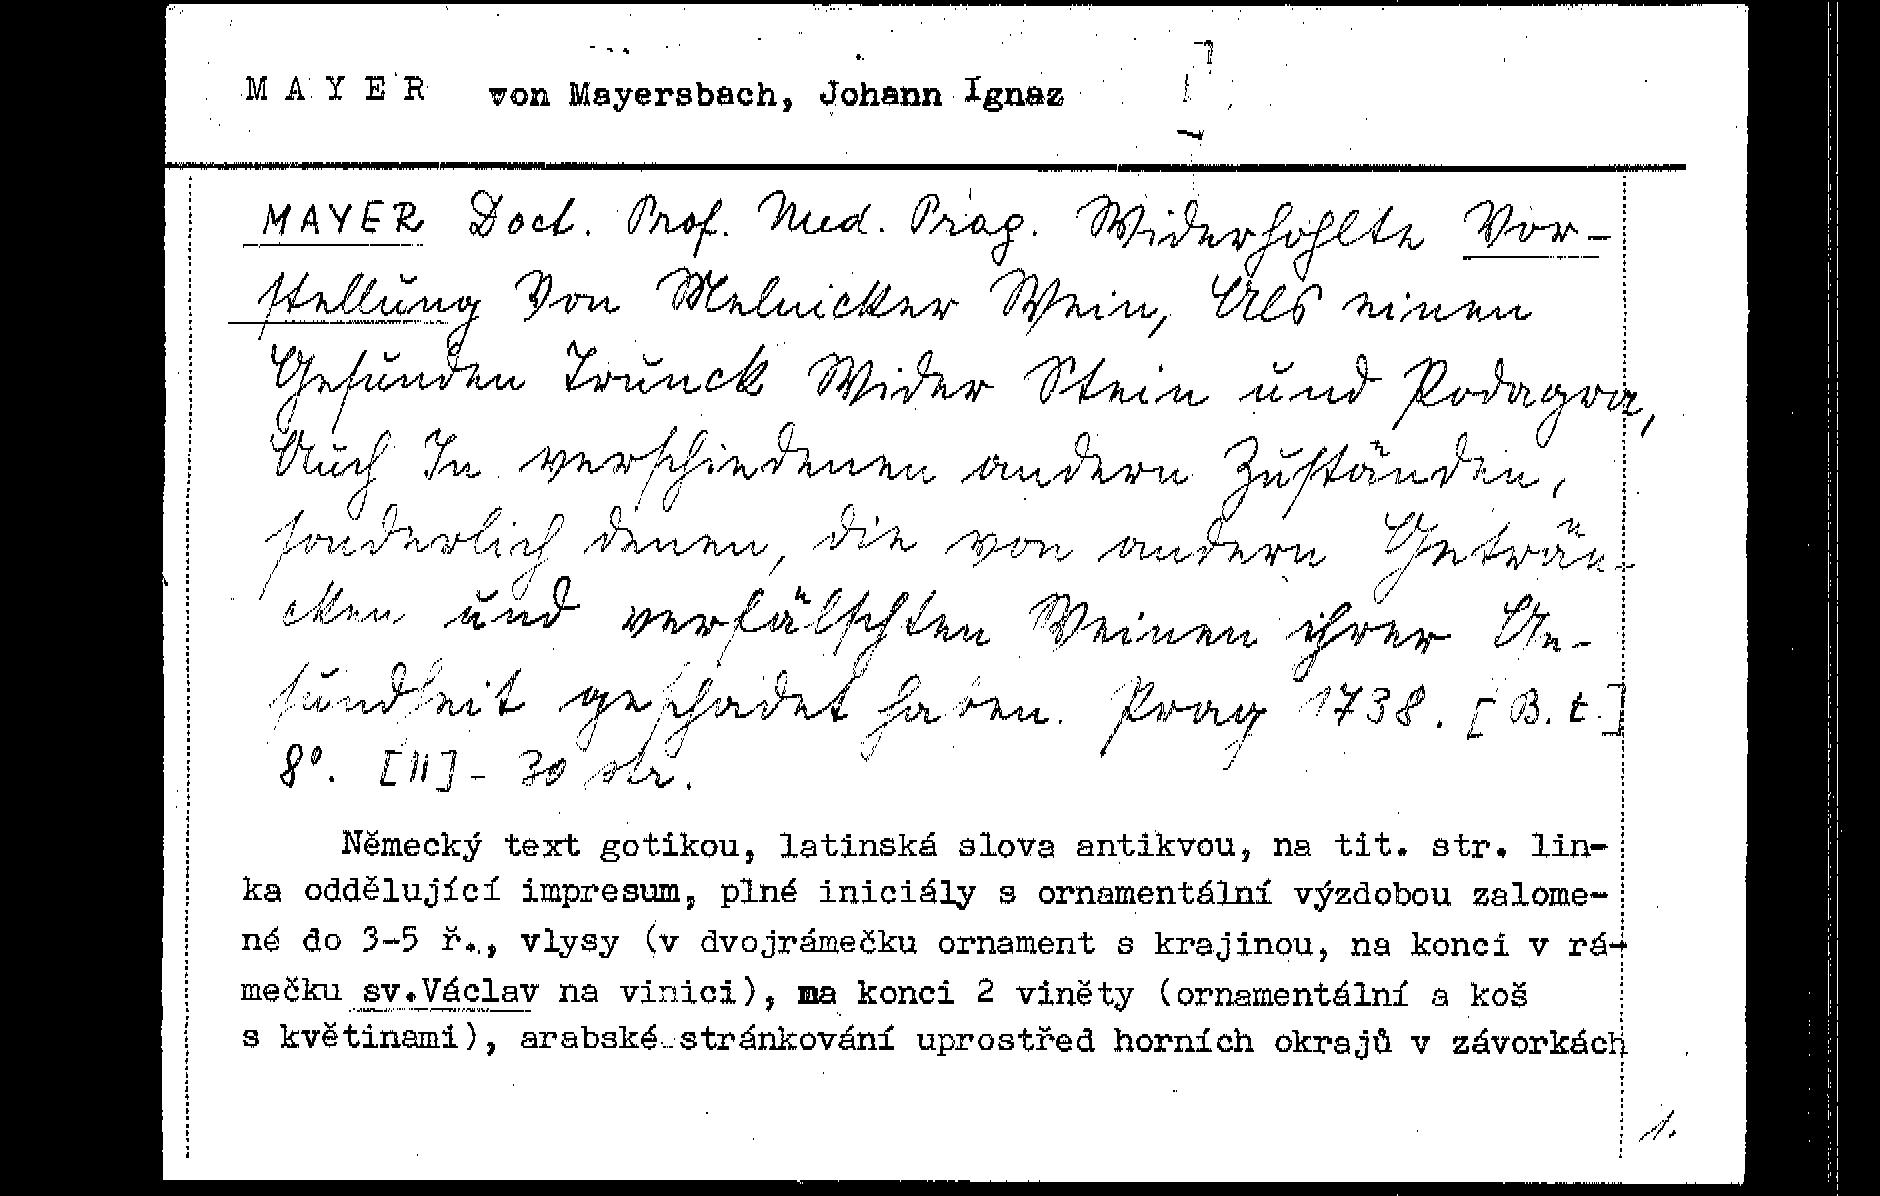 M A Y E R von Mayersbach, Johann Ignaz
MAYER Doct. Prof. Med. Prag. Widerhohlte Vor-
stellung Von Melnicker Wein, Als einen
Gesunden Trunck Wider Stein und Podagra,
Auch In verschiedenen andern Zuständen,
sonderlich denen, die von andern Geträn-
cken und verfälschten Weinen ihrer Ge-
sundheit geschadet haben. Prag 1738. [B. t.]
8°. [II] - 30 str.
Německý text gotikou, latinská slova antikvou, na tit. str. lin-
ka oddělující impresum, plné iniciály s ornamentální výzdobou zalome-
né do 3-5 ř., vlysy (v dvojrámečku ornament s krajinou, na konci v rá-
mečku sv.Václav na vinici), na konci 2 viněty (ornamentální a koš
s květinami), arabské stránkování uprostřed horních okrajů v závorkách
1.